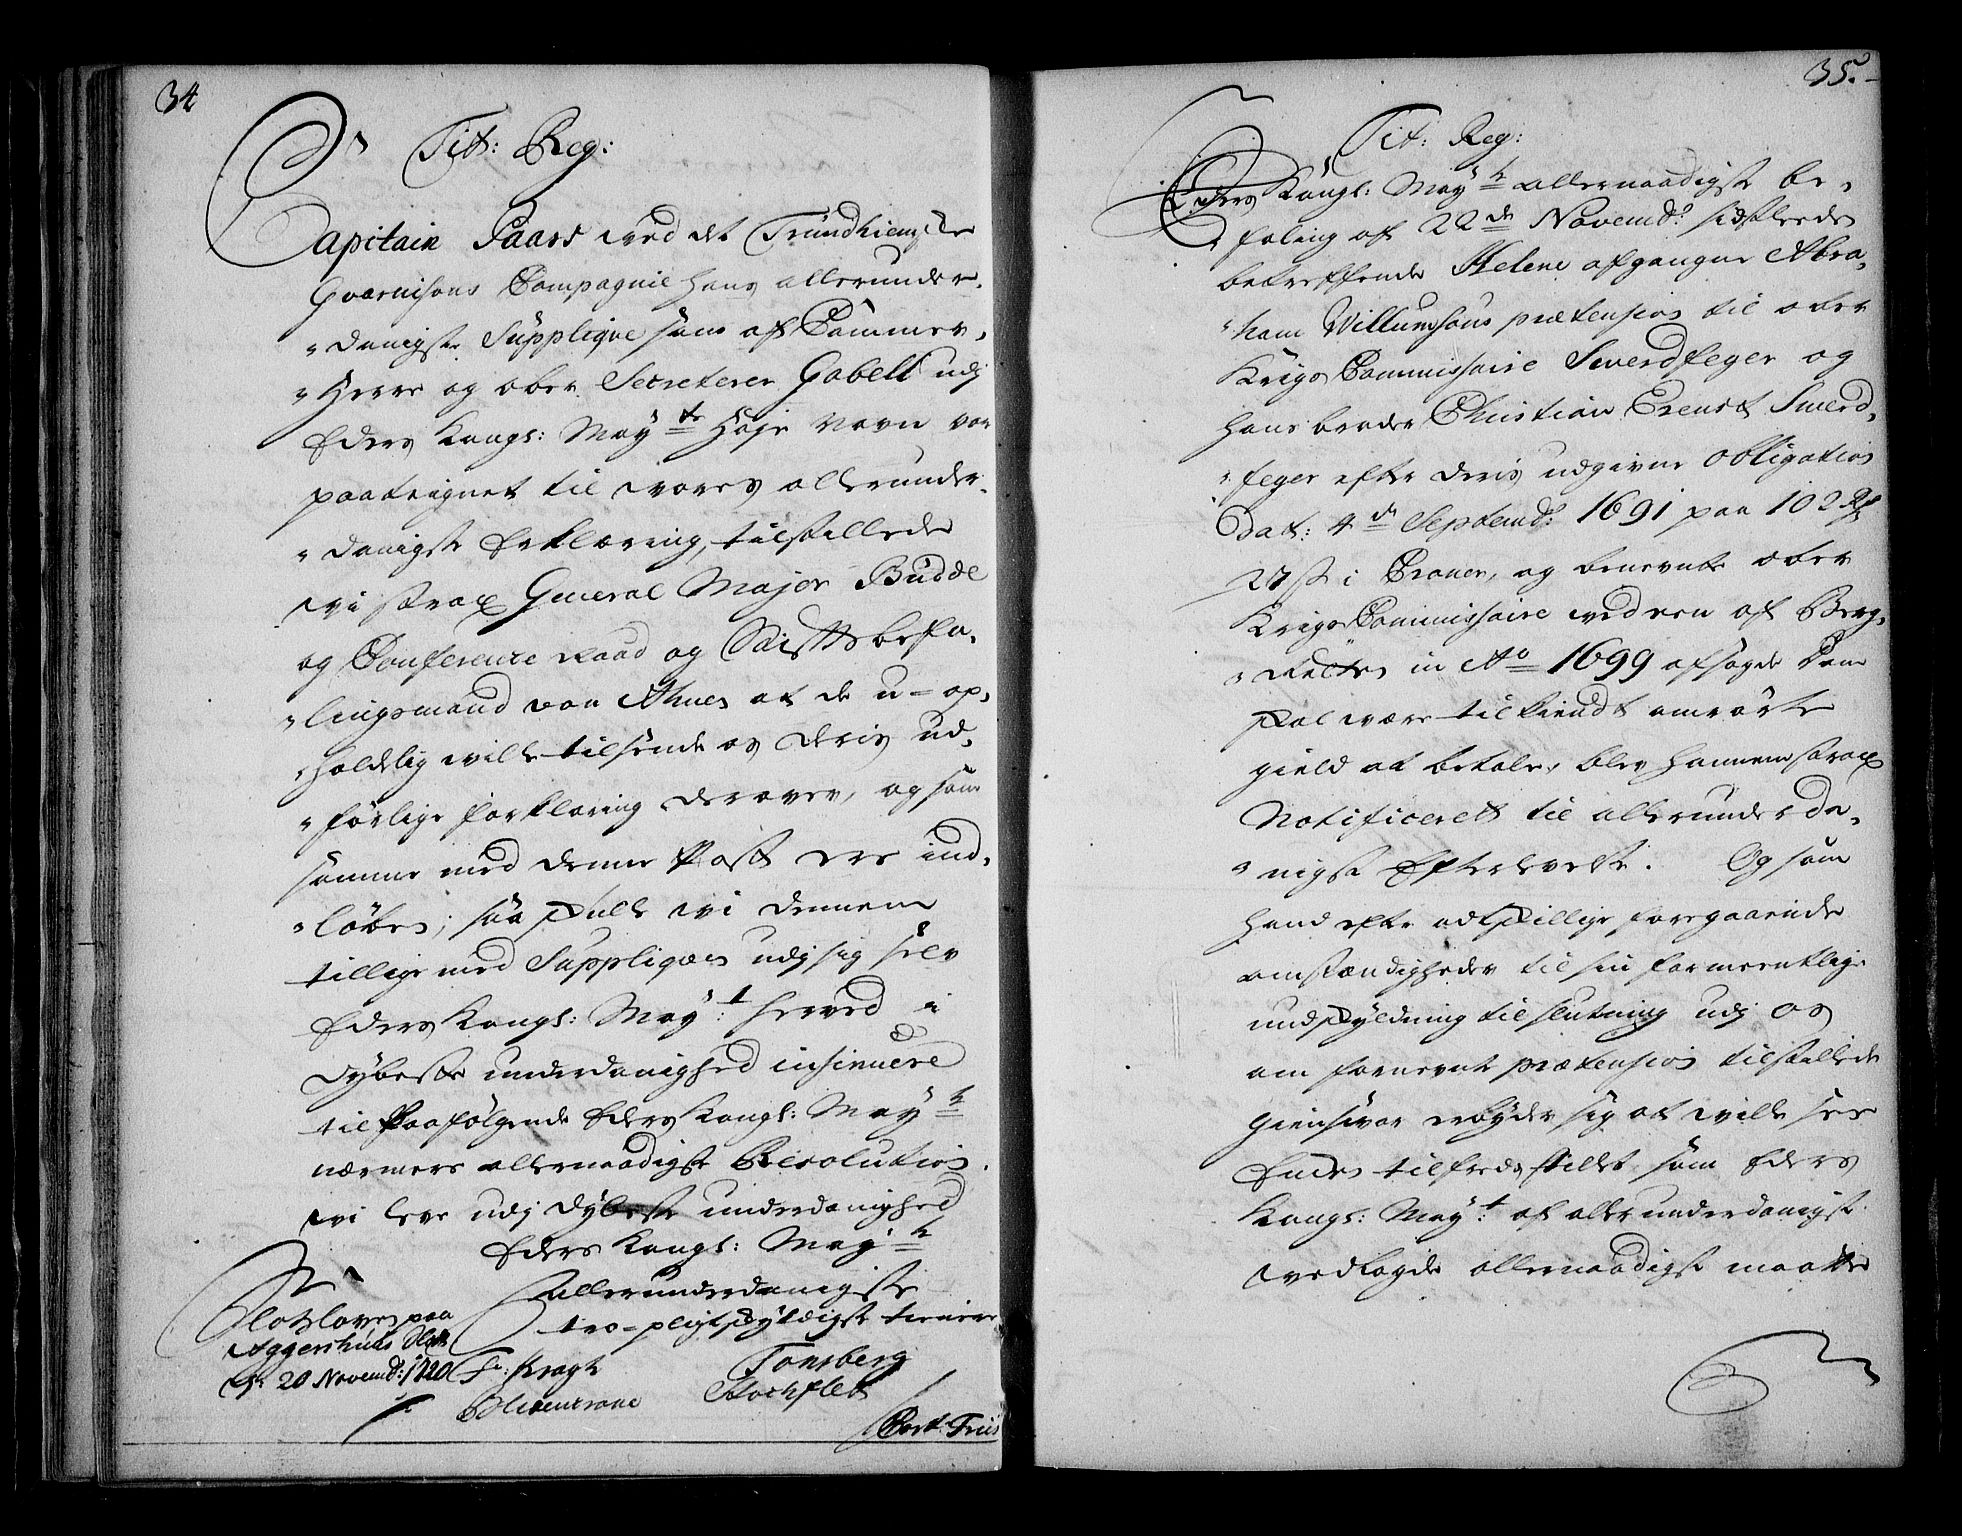 34
Tit: Reg:
Capitain Paars ved det Trundhiemske
Gvarnisons Compagnie hans allerunder-
danigste Supplique som af Cammer-
Herre og ober Secreterer Gabell udj
Eders Kongl: Mayts Høje Navn var
paateignet til vores allerunder-
danigste Erklæring, tilstillede
vi strax General Major Budde
og Conference Raad og Stiftsbefa-
lingsmand von Ahnen at de u-op-
holdelig ville tilsende os deris ud-
førlige forklaring derover, og som
samme med denne Post ere ind-
løben; saa skulle vi dennem
tillige med Suppliqven udj sig selv
Eders Kongl: Mayt: herved i
dybeste underdanighed insinuere
til Paafølgende Eders Kongl: Mayts
nærmere allernaadigste Resolution.
vi leve udj dybeste underdanighed
Eders Kongl: Mayts
allerunderdanigste
tro-pligtskyldigste tienere
Slotzloven paa
Aggershuus Slott
d: 20 Novembr: 1720
Fr: Kragh
Tonsberg
Blixencrone
Stochflet
Bert: Friis
35.
Tit: Reg:
Eders Kongl: Mayts allernaadigste be-
faling af 22de Novembr: sidstleeden
betreffende Helene afgangne Abra-
ham Willumsøns prætension til ober
Krigs Commissaire Swerdfeger og
hans broder Christian Ernst Swerd-
feger efter deris udgivne obligation
Dat: 4de Septembr: 1691 paa 102 Rdr
27 s i Croner, og benevnte ober
Krigs Commissaire ved een af Berg-
Retten in Ao 1699 afsagde Dom
skal være tilkiendt omrørte
gield at betale, blev hannem strax
Notificerett til allerunderda-
nigst Efterlevelse. Og som
hand efter adskillige foregaaende
omstændigheder til sin formeentlige
undskyldning til slutning udj os
om fornevnte prætension tilstillede
giensvar erbyder sig at ville see
Enken tilfredsstillet som Eders
Kongl: Mayt: af allerunderdanigst
vedlagde allernaadigst maatte